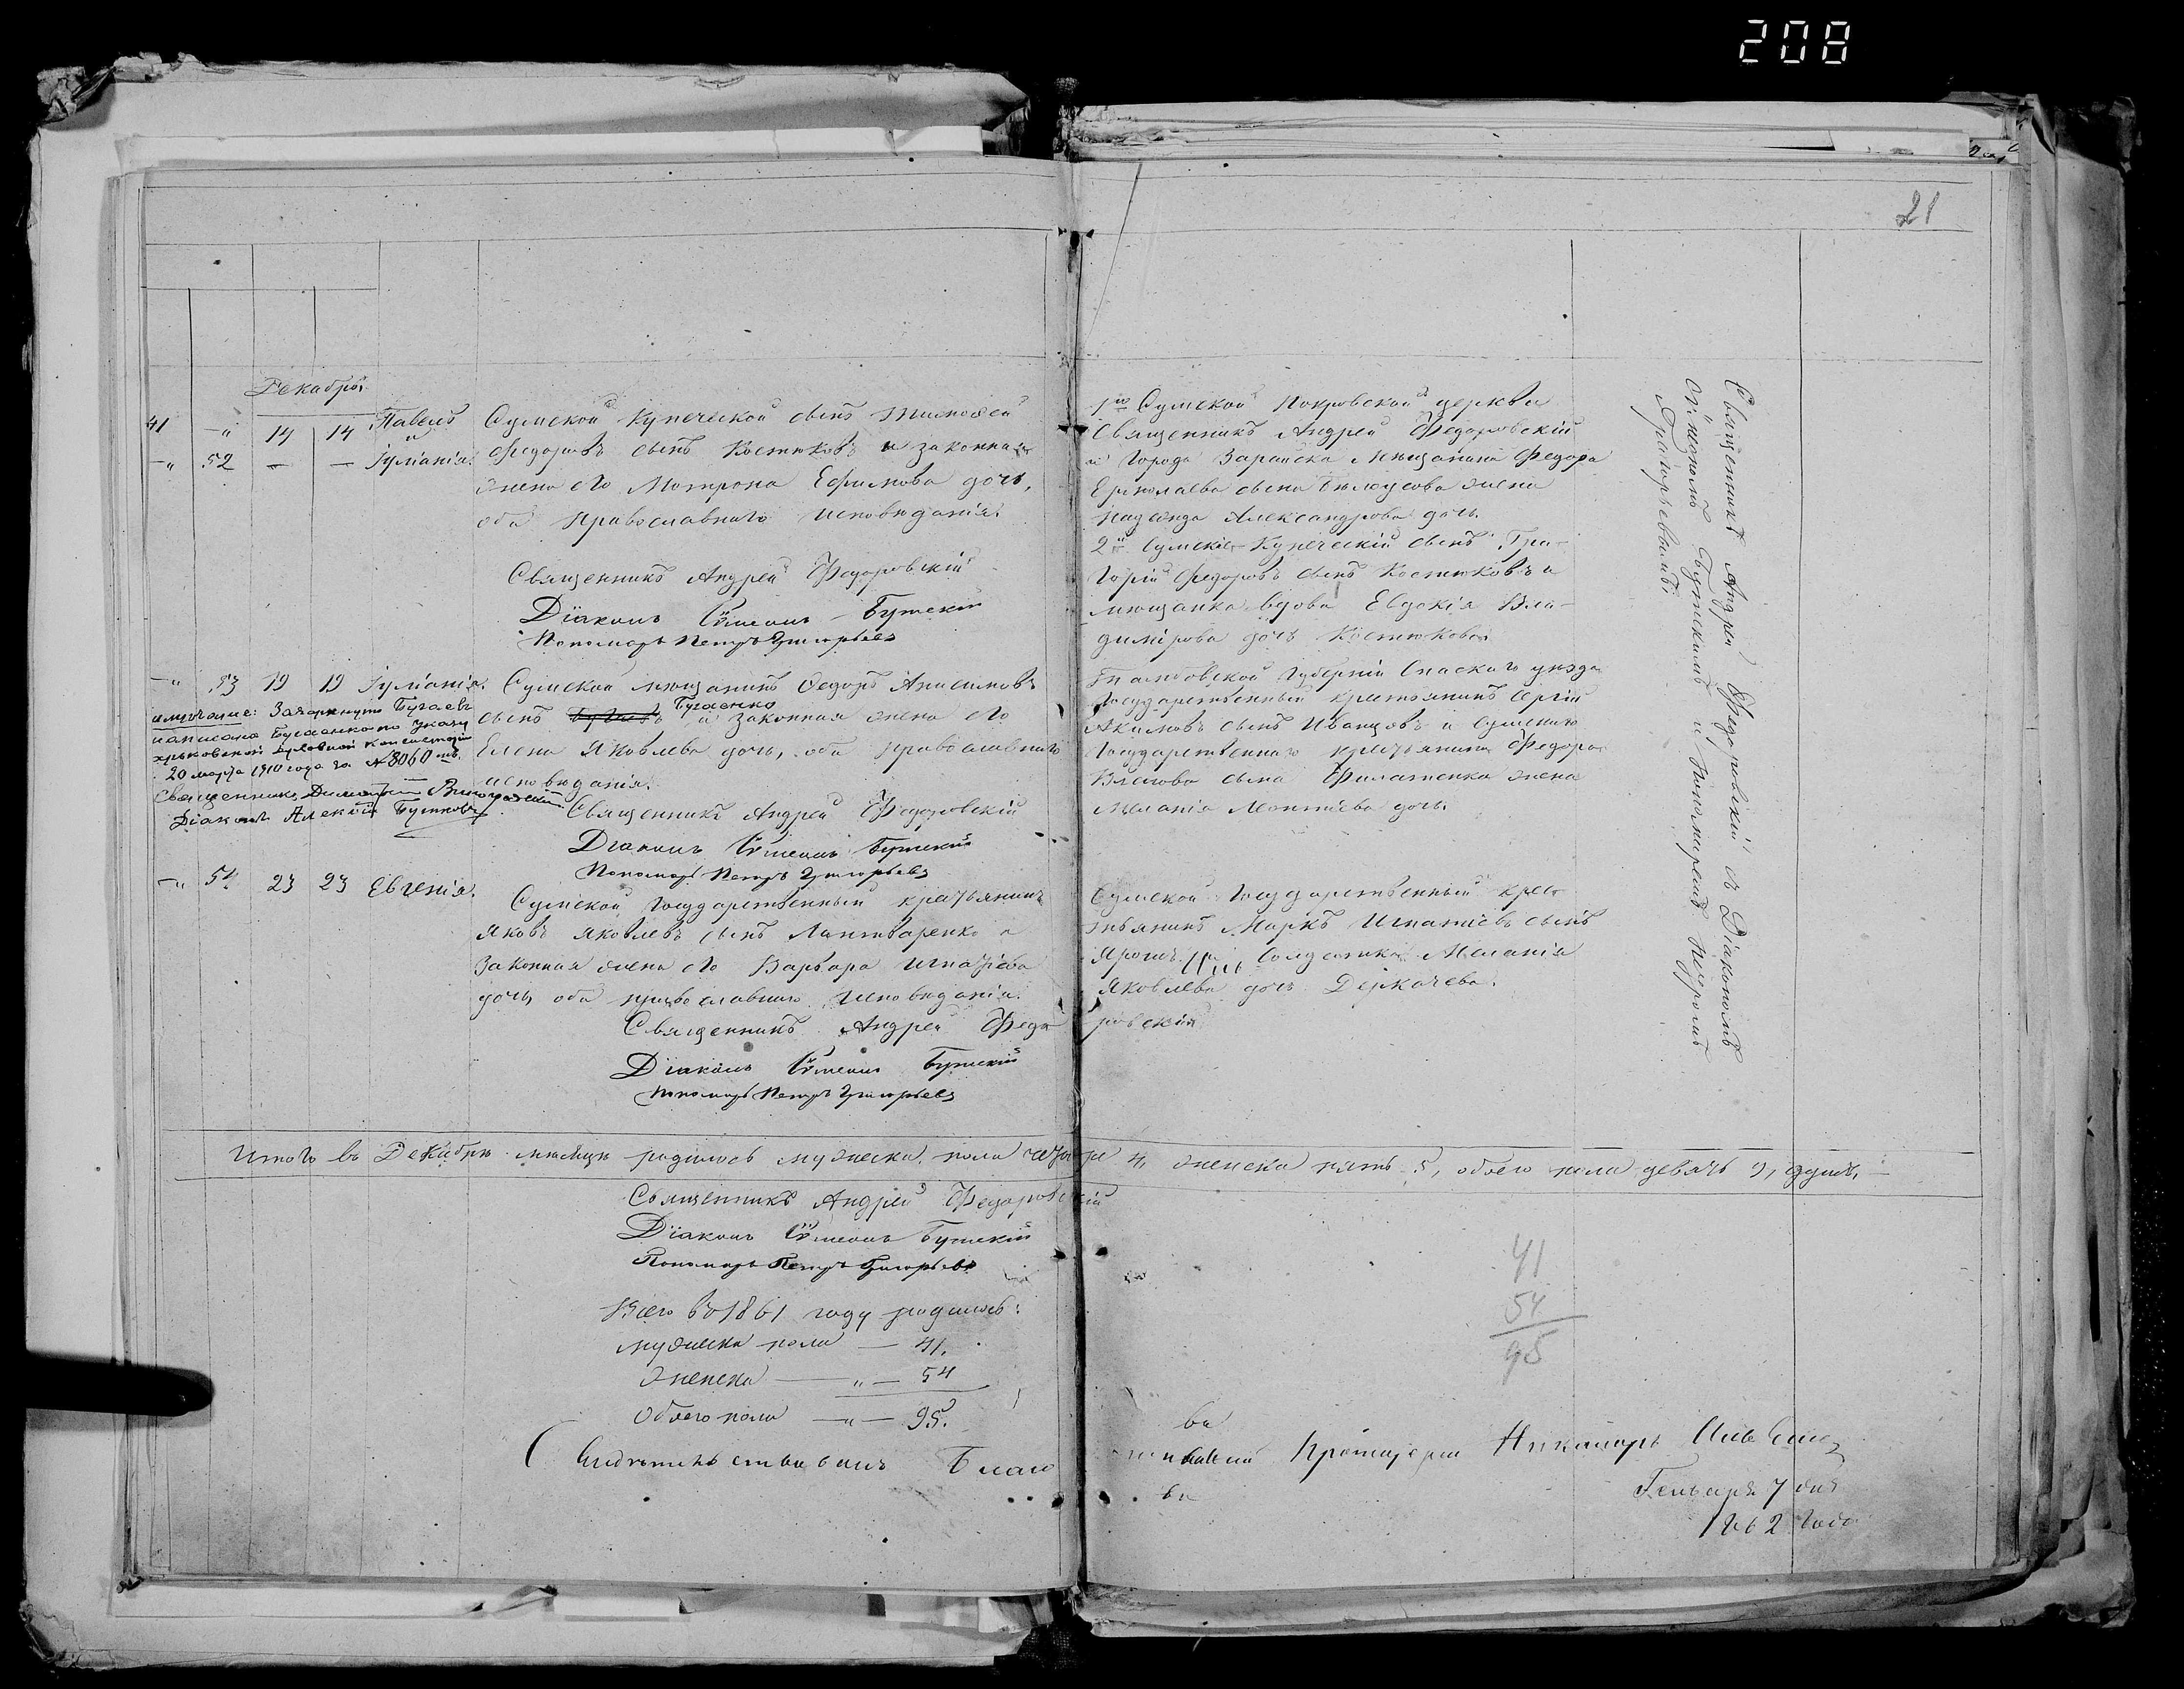 208
21
Декабрь
41 -„ 14 14 Павелъ
и
-„ 52 — — Іуліанія.
Сумской купеческой сынъ Тимофей
Федоровъ сынъ Костюковъ и законная
жена его Матрона Ефимова дочь,
оба православнаго исповѣданія.
Священникъ Андрей Федоровскій
Діаконъ Сѵмеонъ Бутскій
Пономарь Петръ Григорьевъ
1й Сумской Покровской церкви
Священникъ Андрей Федоровскій
и города Зарайска мѣщанина Федора
Ермолаева сына Бѣлоусова жена
Надежда Александрова дочь.
2й Сумскій Купеческій сынъ Гри-
горій Федоровъ сынъ Костюковъ и
мѣщанка вдова Евдокія Вла-
димірова дочь Костюкова
Священникъ Андрей Федоровскій съ Діакономъ
Сѵмеономъ Бутскимъ и Пономаремъ Петромъ
Григорьевымъ.
-„ 53 19 19 Іуліанія.
Сумской мѣщанинъ Федоръ Анисимовъ
Бугаенко
сынъ Бугаевъ и законная жена его
Елена Яковлева дочь, оба православнаго
исповѣданія.
Священникъ Андрей Федоровскій
Діаконъ Сѵмеонъ Бутскій
Пономарь Петръ Григорьевъ
имѣчаніе: Зачеркнуто Бугаевъ
написано Бугаенко по Указу
харьковской духовной Консисторіи
20 марта 1910 года за № 8060 мъ.
Священникъ Димитрій Виноградскій
Діаконъ Алексій Бутковъ
Тамбовской Губерніи Спаскаго уѣзда
Государственный крестьянинъ Сергій
Акимовъ сынъ Иванцовъ и Сумскаго
Государственнаго крестьянина Федора
Власова сына Филатенка жена
Меланія Леонтіева дочь.
-„ 54 23 23 Евгенія.
Сумской Государственный крестьянинъ
Яковъ Яковлевъ сынъ Лантваренко и
законная жена его Варвара Игнатіева
дочь, оба православнаго исповѣданія.
Священникъ Андрей Федоровскій
Діаконъ Сѵмеонъ Бутскій
Пономарь Петръ Григорьевъ
Сумской Государственный крес-
тьянинъ Маркъ Игнатіевъ сынъ
Ярош Солдатка Меланія
Яковлева дочь Деркачева.
Итого въ Декабрѣ мѣсяцѣ родилось мужеска пола четыре 4, женска пять 5, обоего пола девять 9, душъ.
Священникъ Андрей Федоровскій
Діаконъ Сѵмеонъ Бутскій
Пономарь Петръ Григорьевъ
Всего въ 1861 году родилось:
мужеска пола — 41.
женска — „ — 54
Обоего пола — „ — 95.
41
54
95
Свидѣтельствовалъ Благо Протоіерей Никаноръ
Генваря 7 дня
1862 года